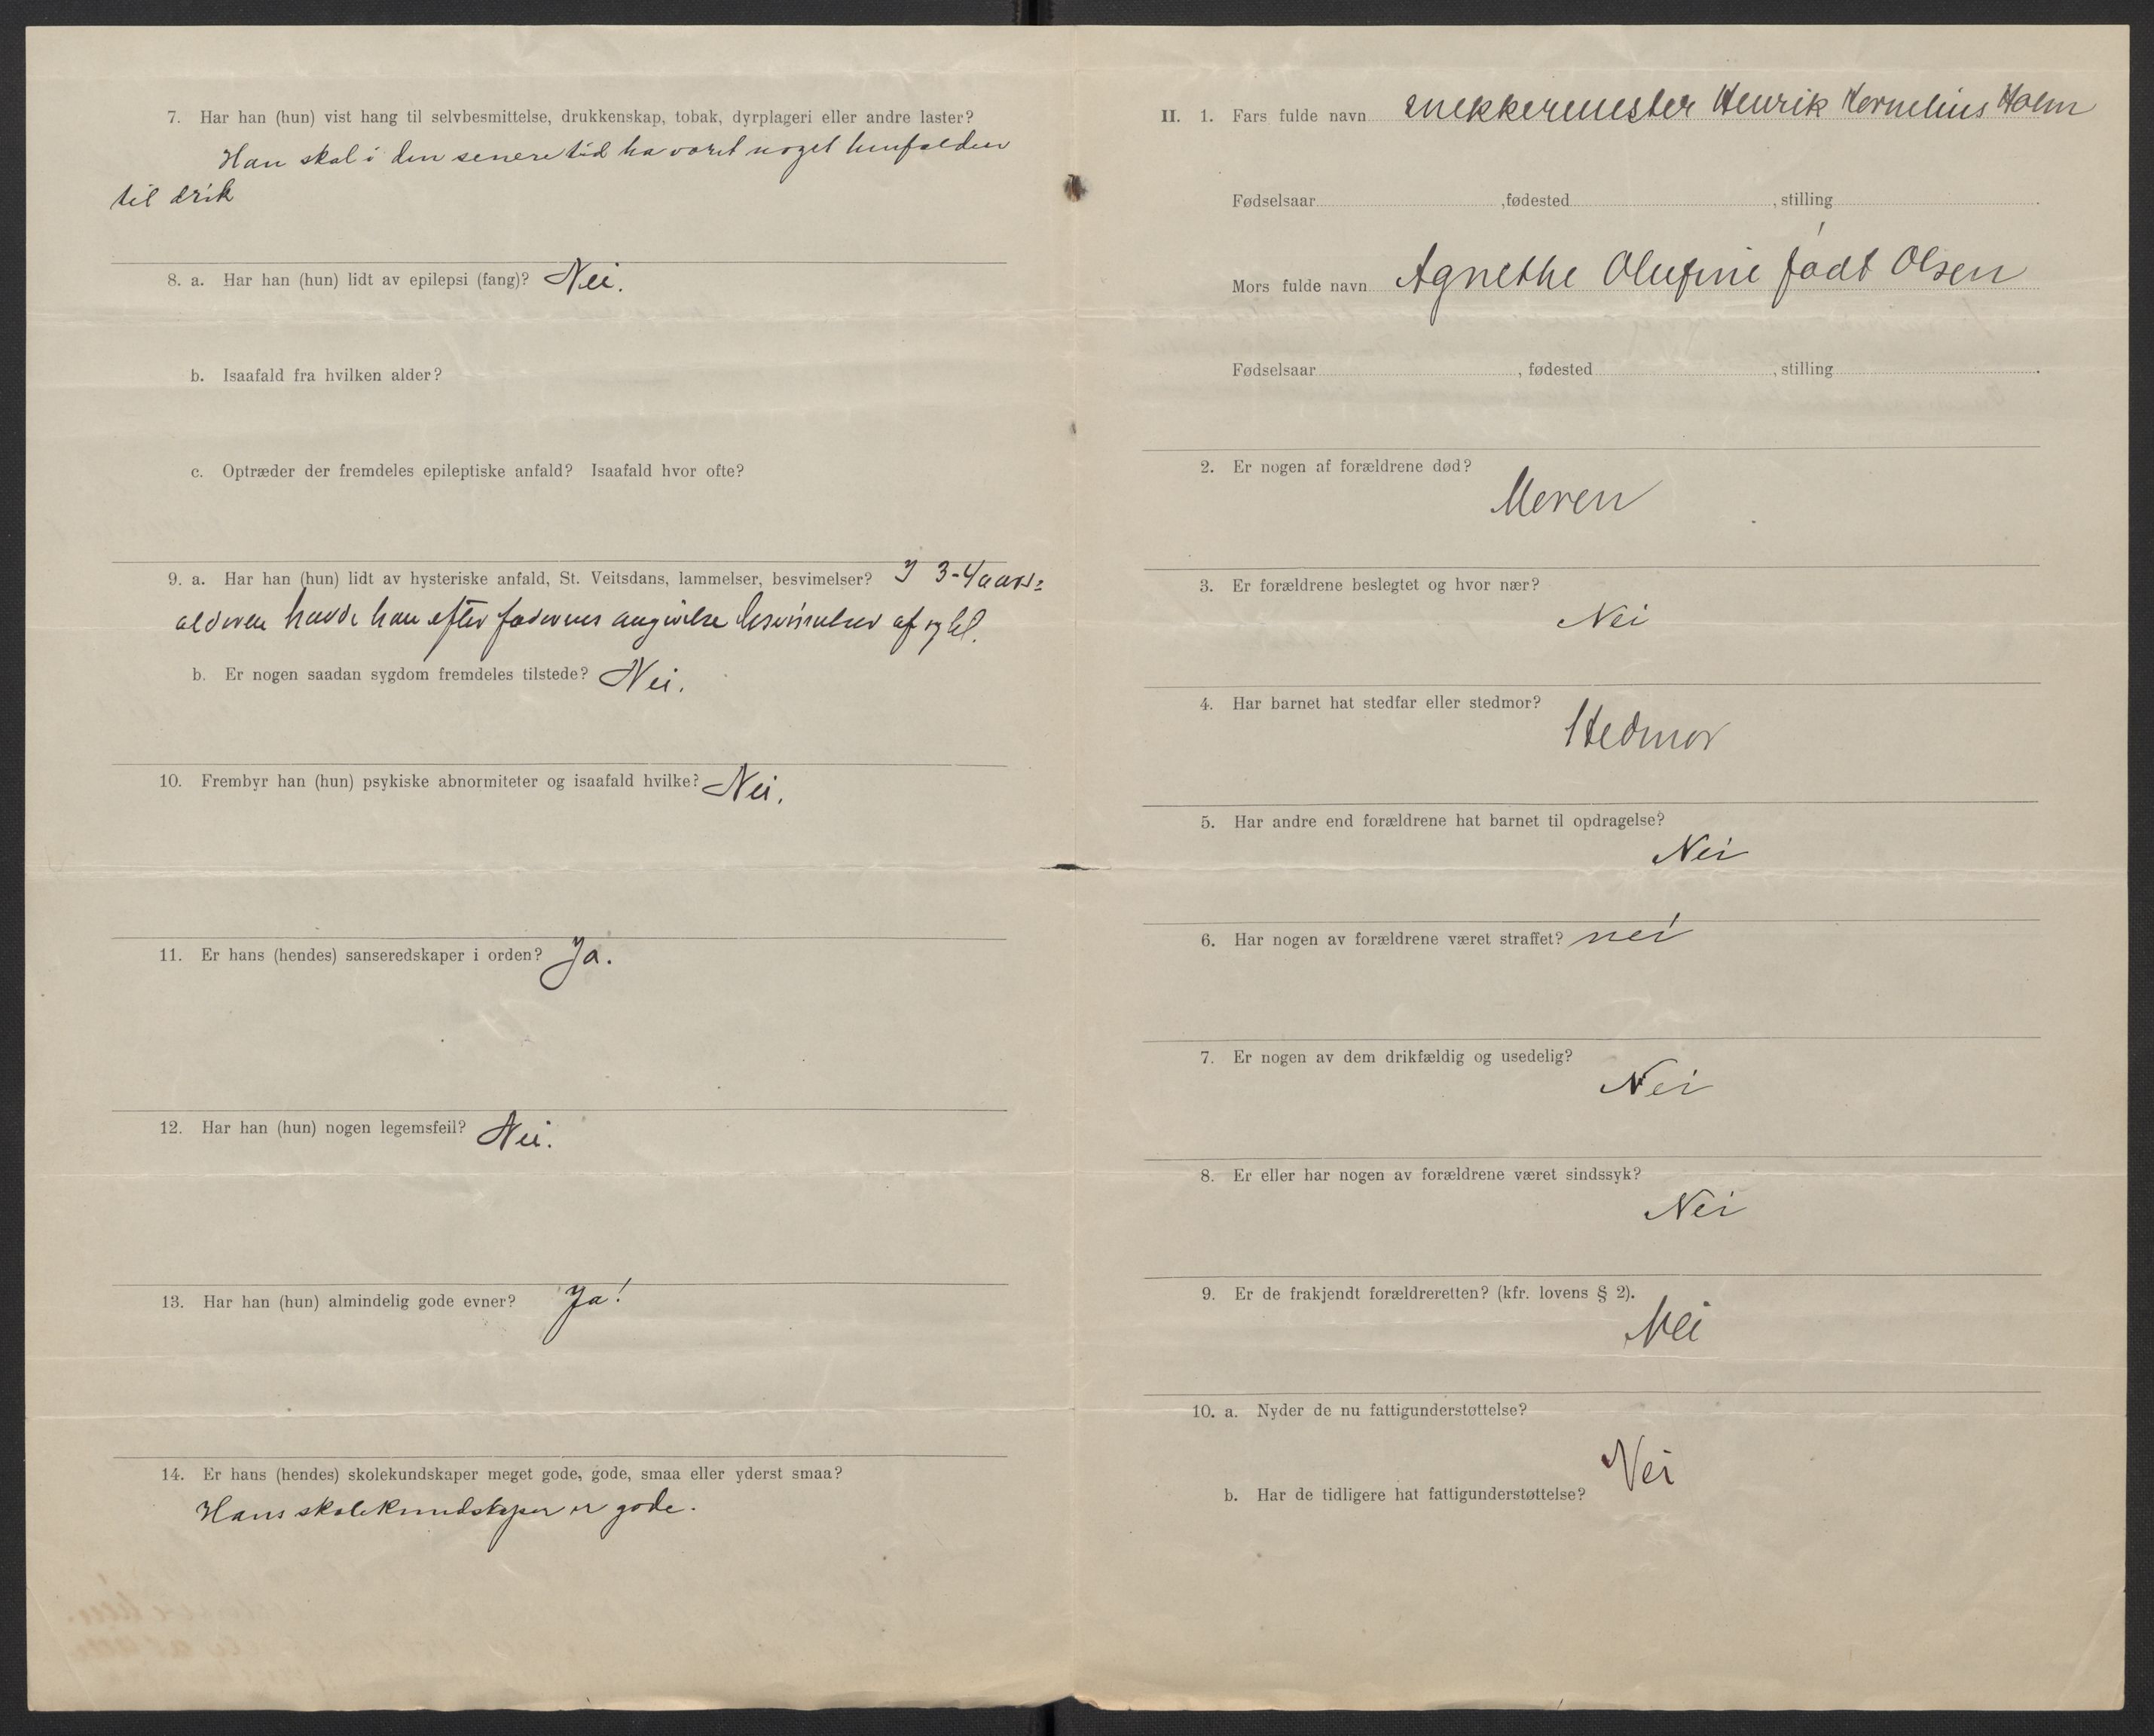 7. Har han (hun) vist hang til selvbesmittelse, drukkenskap, tobak, dyrplageri eller andre laster?
Han skal i den senere tid ha været noget henfalden
til drik
8. a. Har han (hun) lidt av epilepsi (fang)? Nei.
b. Isaafald fra hvilken alder?
c. Optræder der fremdeles epileptiske anfald? Isaafald hvor ofte?
9. a. Har han (hun) lidt av hysteriske anfald, St. Veitsdans, lammelser, besvimelser? I 3-4 aars=
alderen havde han efter faderens angivelse besvimelser af
b. Er nogen saadan sygdom fremdeles tilstede? Nei.
10. Frembyr han (hun) psykiske abnormiteter og isaafald hvilke? Nei.
11. Er hans (hendes) sanseredskaper i orden? Ja.
12. Har han (hun) nogen legemsfeil? Nei.
13. Har han (hun) almindelig gode evner? Ja!
14. Er hans (hendes) skolekundskaper meget gode, gode, smaa eller yderst smaa?
Hans skolekundskaper er gode.
II. 1. Fars fulde navn snekkermester Henrik Kornelius Holm
Fødselsaar , fødested , stilling .
Mors fulde navn Agnethe Olufine født Olsen
Fødselsaar , fødested , stilling .
2. Er nogen af forældrene død?
Moren
3. Er forældrene beslegtet og hvor nær?
Nei
4. Har barnet hat stedfar eller stedmor?
Stedmor
5. Har andre end forældrene hat barnet til opdragelse?
Nei
6. Har nogen av forældrene været straffet? nei
7. Er nogen av dem drikfældig og usedelig?
Nei
8. Er eller har nogen av forældrene været sindssyk?
Nei
9. Er de frakjendt forældreretten? (kfr. lovens § 2).
Nei
10. a. Nyder de nu fattigunderstøttelse?
Nei
b. Har de tidligere hat fattigunderstøttelse?